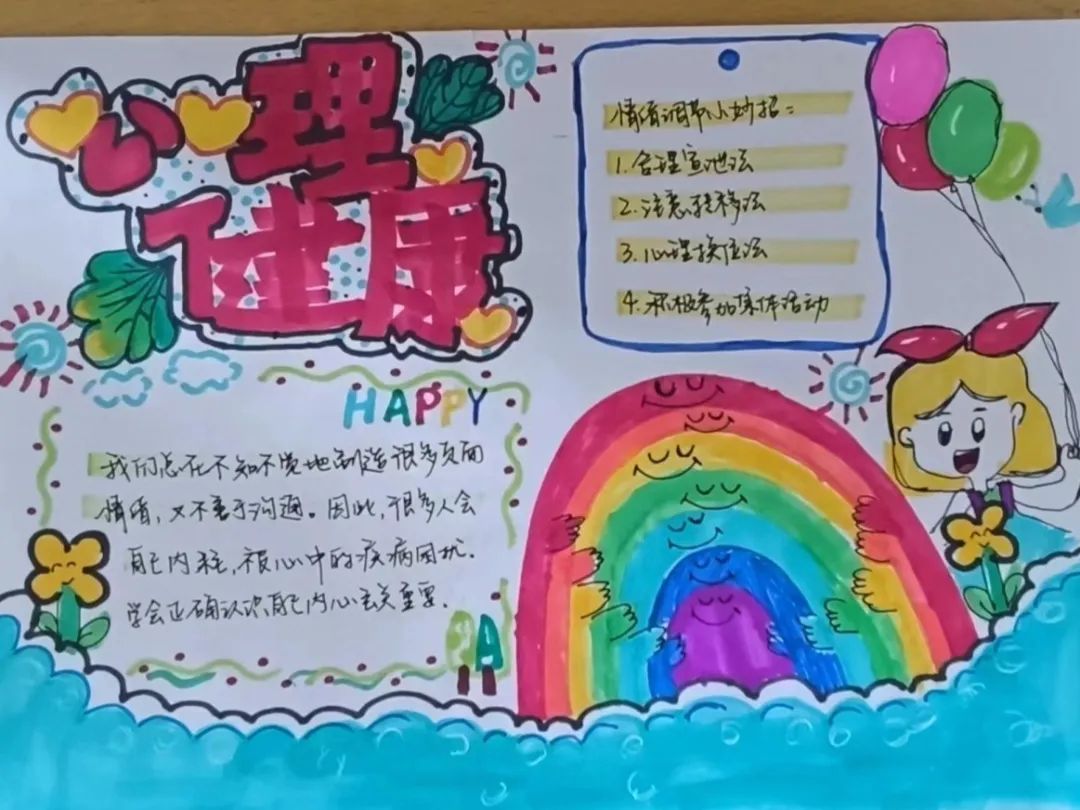 心理
健康
情绪调节小妙招：
1.合理宣泄法
2.注意转移法
3.心理换位法
4.积极参加集体活动
HAPPY
我们总在不知不觉地制造很多负面
情绪，又不善于沟通。因此，很多人会
自己内耗，被心中的疾病困扰.
学会正确认识自己内心至关重要.